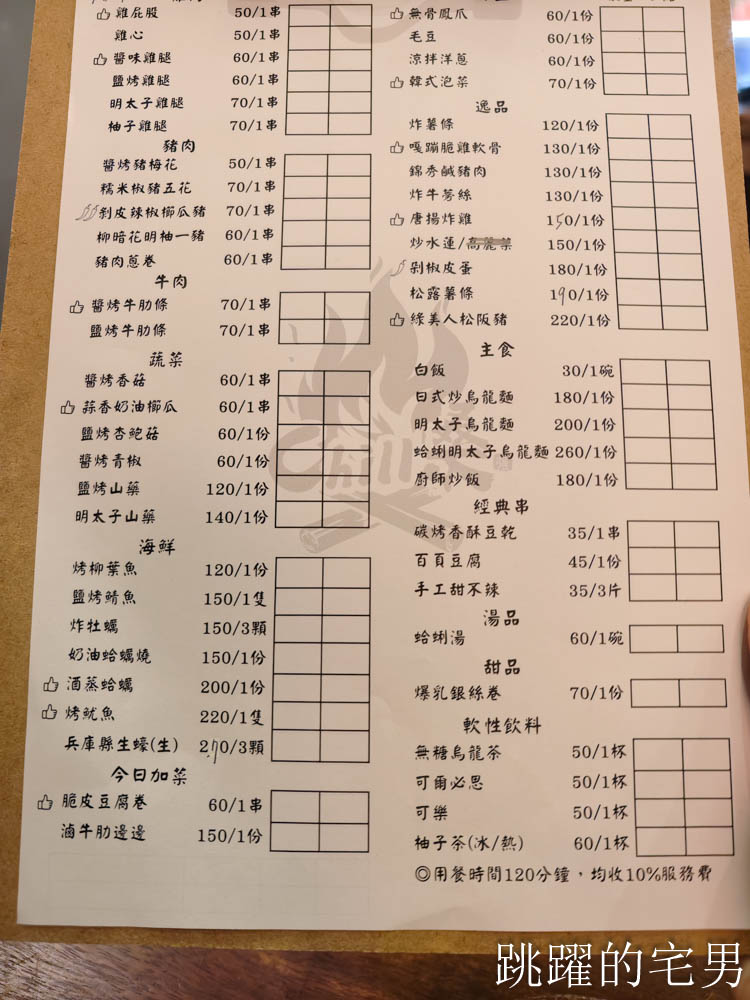 雞屁股 50/1串
雞心 50/1串
醬味雞腿 60/1串
鹽烤雞腿 60/1串
明太子雞腿 70/1串
柚子雞腿 70/1串
豬肉
醬烤豬梅花 50/1串
糯米椒豬五花 70/1串
剝皮辣椒櫛瓜豬 70/1串
柳暗花明柚一豬 60/1串
豬肉蔥卷 60/1串
牛肉
醬烤牛肋條 70/1串
鹽烤牛肋條 70/1串
蔬菜
醬烤香菇 60/1串
蒜香奶油櫛瓜 60/1串
鹽烤杏鮑菇 60/1份
醬烤青椒 60/1份
鹽烤山藥 120/1份
明太子山藥 140/1份
海鮮
烤柳葉魚 120/1份
鹽烤鯖魚 150/1隻
炸牡蠣 150/3顆
奶油蛤蠣燒 150/1份
酒蒸蛤蠣 200/1份
烤魷魚 220/1隻
兵庫縣生蠔(生) 270/3顆
今日加菜
脆皮豆腐卷 60/1串
滷牛肋邊邊 150/1份
無骨鳳爪 60/1份
毛豆 60/1份
涼拌洋蔥 60/1份
韓式泡菜 70/1份
逸品
炸薯條 120/1份
嘎蹦脆雞軟骨 130/1份
錦夯鹹豬肉 130/1份
炸牛蒡絲 130/1份
唐揚炸雞 150/1份
炒水蓮/高麗菜 150/1份
剁椒皮蛋 180/1份
松露薯條 190/1份
綠美人松阪豬 220/1份
主食
白飯 30/1碗
日式炒烏龍麵 180/1份
明太子烏龍麵 200/1份
蛤蜊明太子烏龍麵 260/1份
廚師炒飯 180/1份
經典串
碳烤香酥豆乾 35/1串
百頁豆腐 45/1份
手工甜不辣 35/3片
湯品
蛤蜊湯 60/1碗
甜品
爆乳銀絲卷 70/1份
軟性飲料
無糖烏龍茶 50/1杯
可爾必思 50/1杯
可樂 50/1杯
柚子茶(冰/熱) 60/1杯
◎用餐時間120分鐘，均收10%服務費
跳躍的宅男